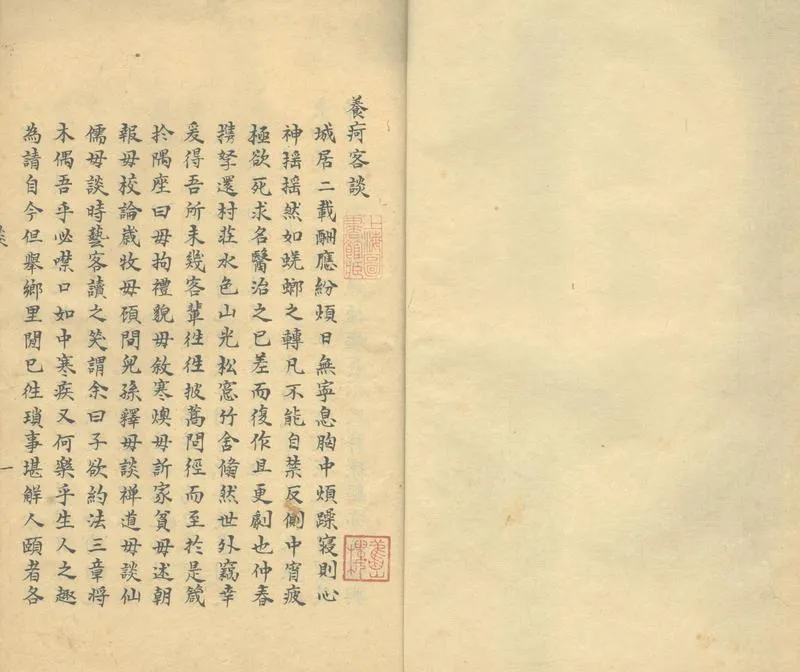 養疴客談
城居二載酬應紛煩日無寧息胸中煩躁寢則心
神摇摇然如蜣螂之轉凡不能自禁反側中宵疲
極欲死求名醫治之已差而復作且更劇也仲春
携孥還村莊水色山光松窓竹舍翛然世外竊幸
爰得吾所未幾客輩徃徃披蒿問徑而至於是箴
於隅座曰毋拘禮貌毋敘寒燠毋訴家貧毋述朝
報毋校論歲收毋碩問兒孫釋毋談禅道毋談仙
儒毋談時藝客讀之笑謂余曰子欲約法三章将
木偶吾乎必噤口如中寒疾又何樂乎生人之趣
為請自今但舉鄉里閒已徃瑣事堪解人頤者各
上海圖
書館藏